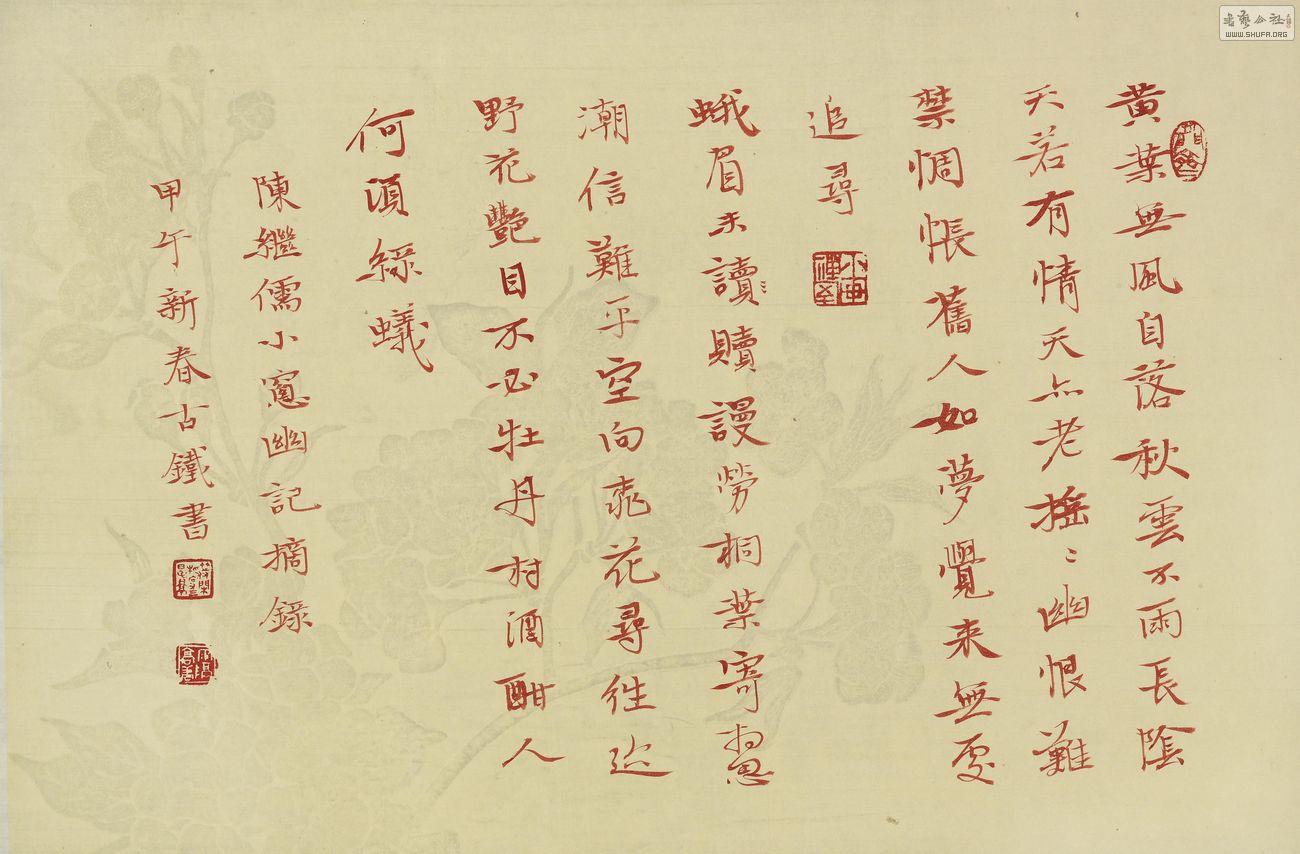 黄葉無風自落秋雲不雨長陰
天若有情天亦老摇〻幽恨難
禁惆悵舊人如夢覺来無處
追尋
蛾眉未讀贖謾勞桐葉寄相思
潮信難平空向桃花尋往迹
野花艷目不必牡丹村酒酣人
何須綠蟻
陳繼儒小窻幽記摘錄
甲午新春古鐵書
書藝公社
WWW.SHUFA.ORG